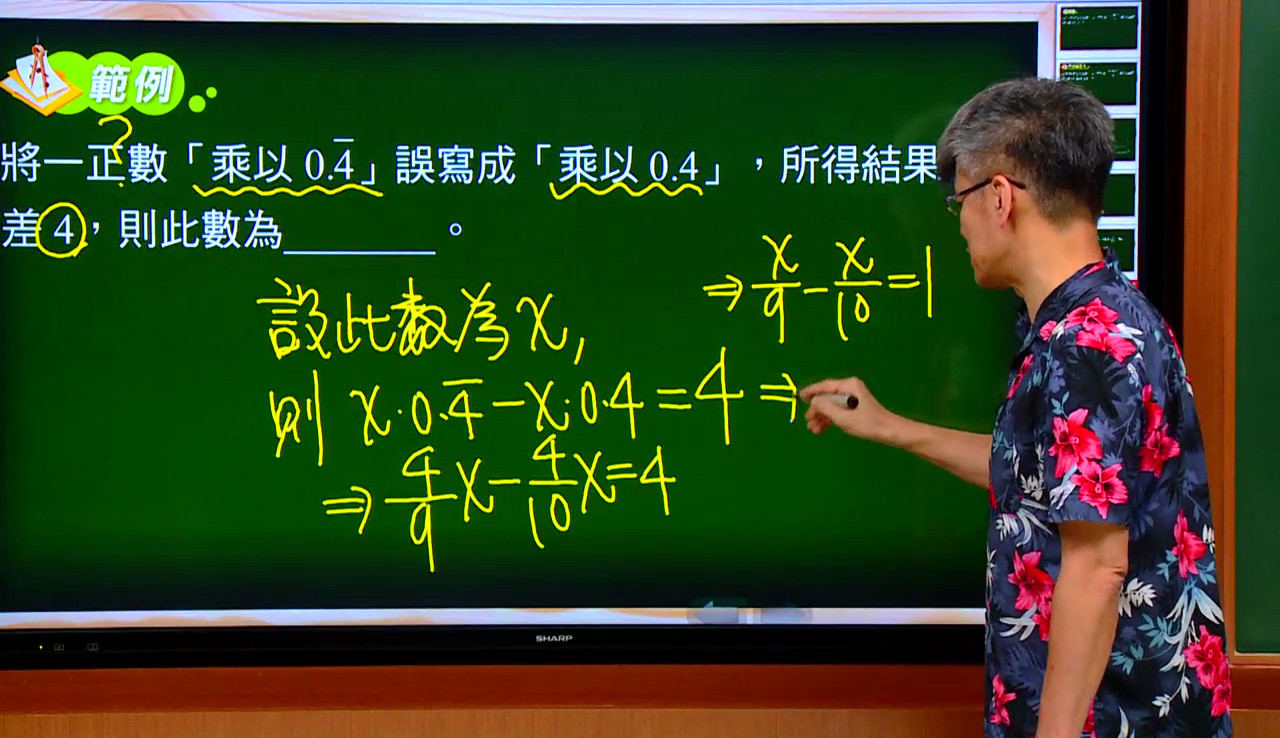 範例
將一正數「乘以 0.4̅」誤寫成「乘以 0.4」，所得結果
?
差 4，則此數為________。
設此數為 x,
則 x·0.4̅ − x·0.4 = 4 ⇒
⇒ 4/9 x − 4/10 x = 4
⇒ x/9 − x/10 = 1
SHARP